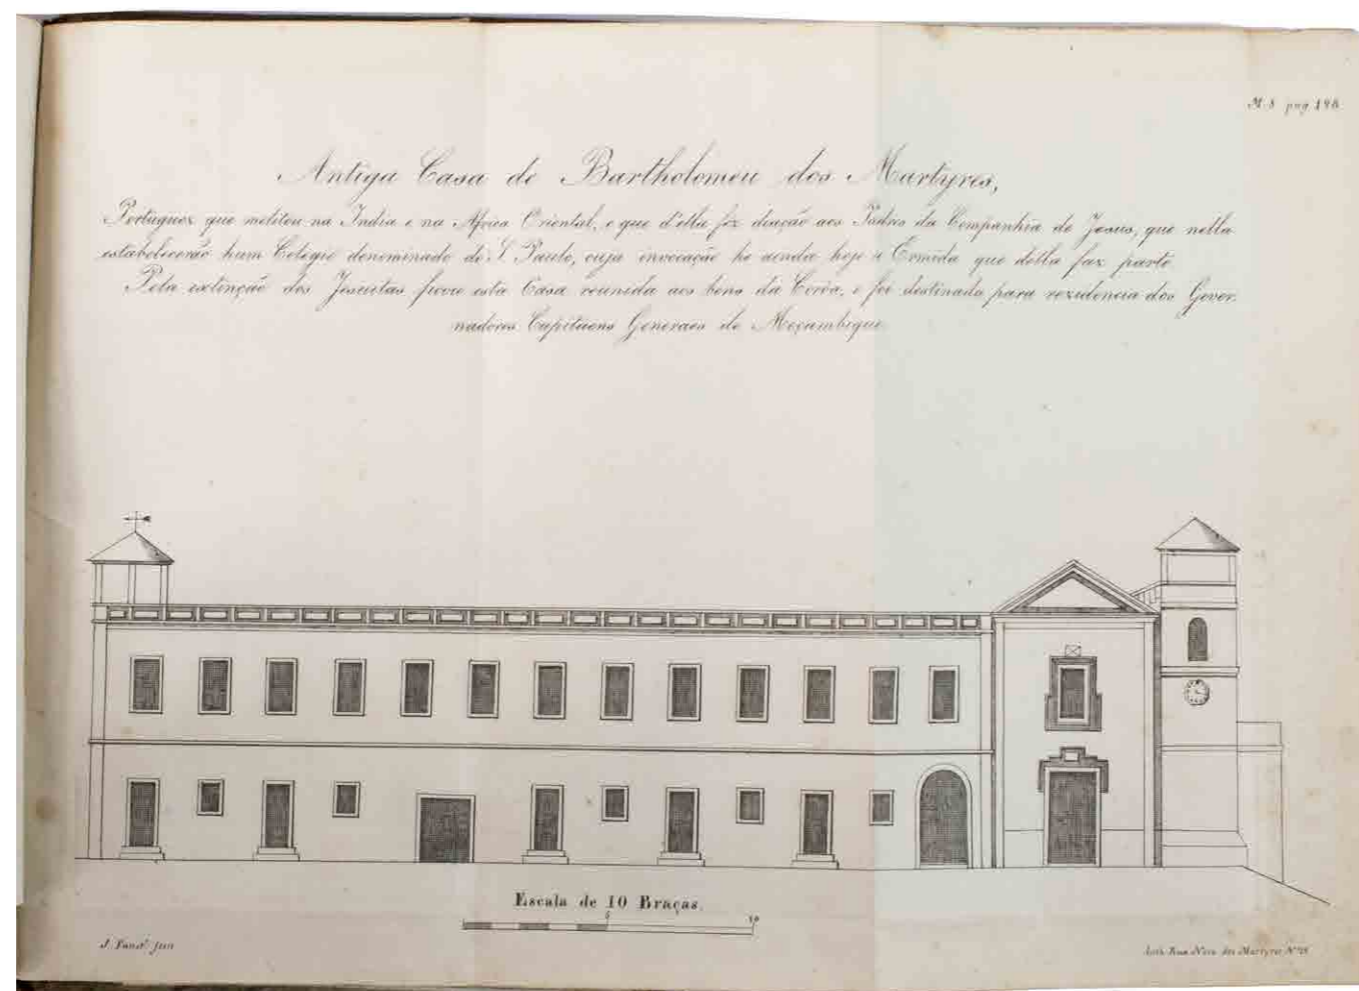 M. 8 pag 198
Antiga Casa de Bartholomeu dos Martyres,
Portuguez que melitou na India e na Africa Oriental, e que d'ella fez doação aos Padres da Companhia de Jesus, que nella
estabelecerão hum Colegio denominado de S. Paulo, cuja invocação he ainda hoje a Ermida que della faz parte
Pela extinção dos Jesuitas ficou esta Casa reunida aos bens da Corôa, e foi destinada para rezidencia dos Gover.
nadores Capitaens Generaes de Moçambique
Escala de 10 Braças.
5
10
J. fun
Lith. Rua Nova dos Martyres Nº